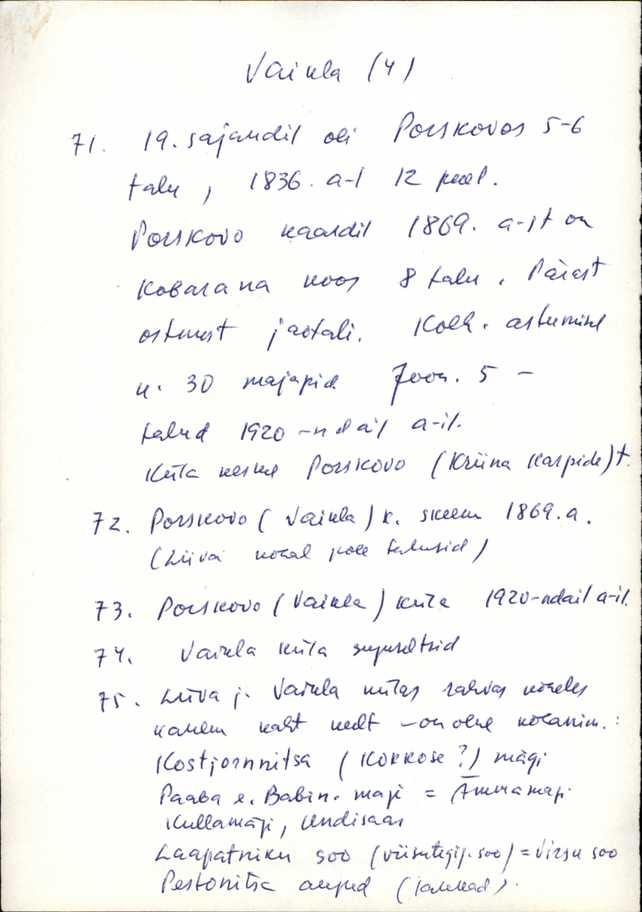 Vaikla (4)
71. 19. sajandil oli Porskovos 5-6
talu, 1836. a-l 12 peret.
Porskovo kaardil 1869. a-st on
kobarana koos 8 talu. Pärast
ostmist jaotati. Kolh. astumisel
u. 30 majapid. Joon. 5 -
talud 1920-ndail a-il.
Küla keskel Porskovo (Kriina Karpide) t.
72. Porskovo (Vaikla) k. skeem 1869. a.
(Liiva kohal pole talusid)
73. Porskovo (Vaikla) küla 1920-ndail a-il.
74. Vaikla küla
75. Liiva j. Vaikla külas rahvas kõneles
kahem kaht keelt - on olnud kohanim.:
Kostjornitsa (Kokkose?) mägi
Paaba e. Babin. mägi = Ämmamägi
Kullamägi, Undisaar
Laapatniku soo (viisutegij. soo) = Virsu soo
Pestonitsa augud (